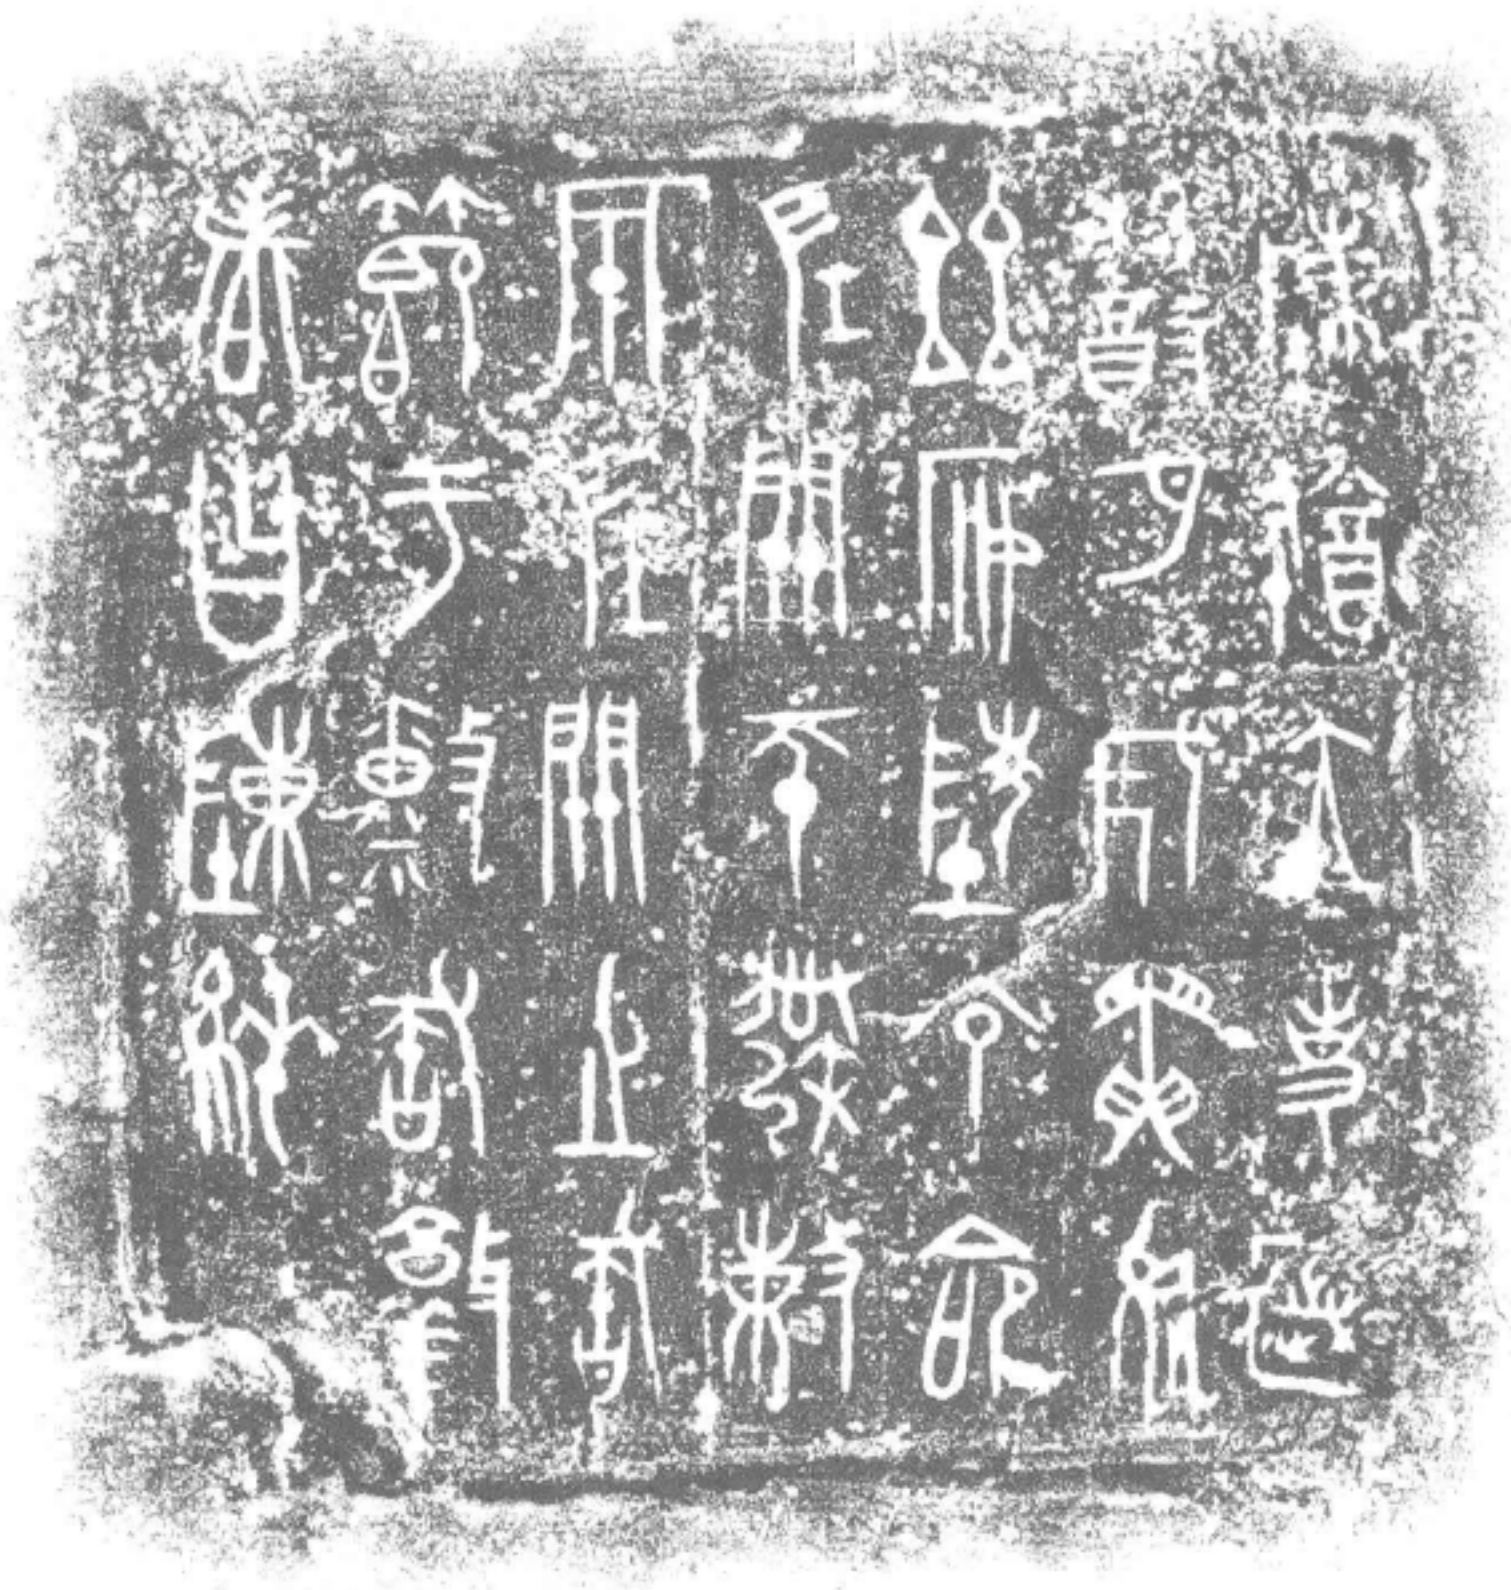 陳猶立事歲
月戊寅於
茲安陵亭命
左關師發敕
成左關之釜
節于廩釜敦
者曰陳純